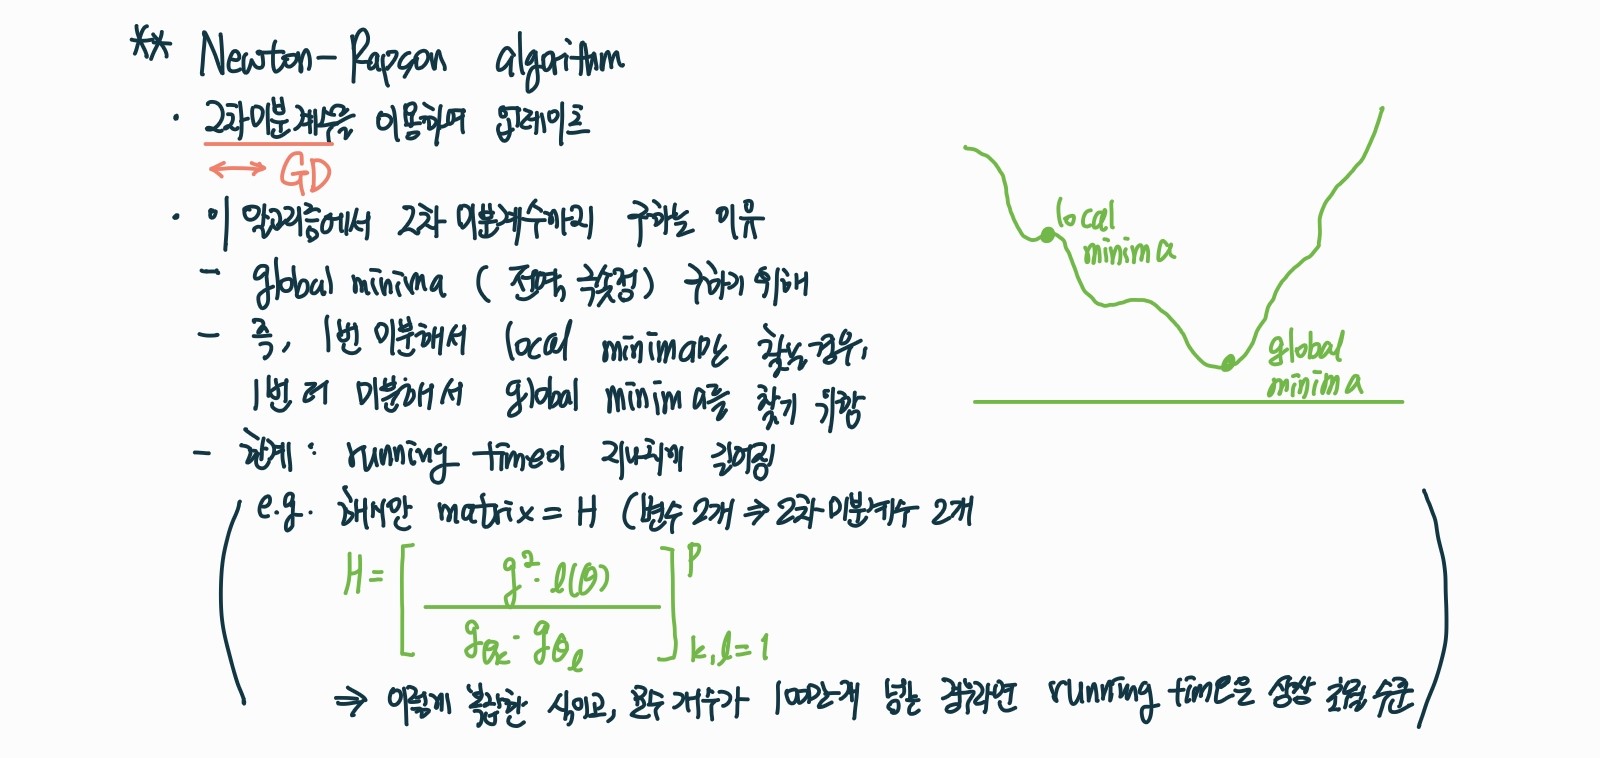 ** Newton-Rapson algorithm
· 2차미분계수를 이용하며 업데이트
↔ GD
· 이 알고리즘에서 2차 미분계수까지 구하는 이유
- global minima ( 전역 극솟점) 구하기 위해
- 즉, 1번 미분해서 local minima만 찾는경우,
1번 더 미분해서 global minima를 찾기 위함
- 한계: running time이 지나치게 길어짐
e.g. 해시안 matrix = H (변수 2개 ⇒ 2차미분계수 2개
H = [ g²· l(θ) / gθₖ · gθₗ ]ᵖ k,l=1
⇒ 이렇게 복잡한 식이고, 변수 개수가 100만개 넘는 경우라면 running time은 상상 초월 수준
local
minima
global
minima